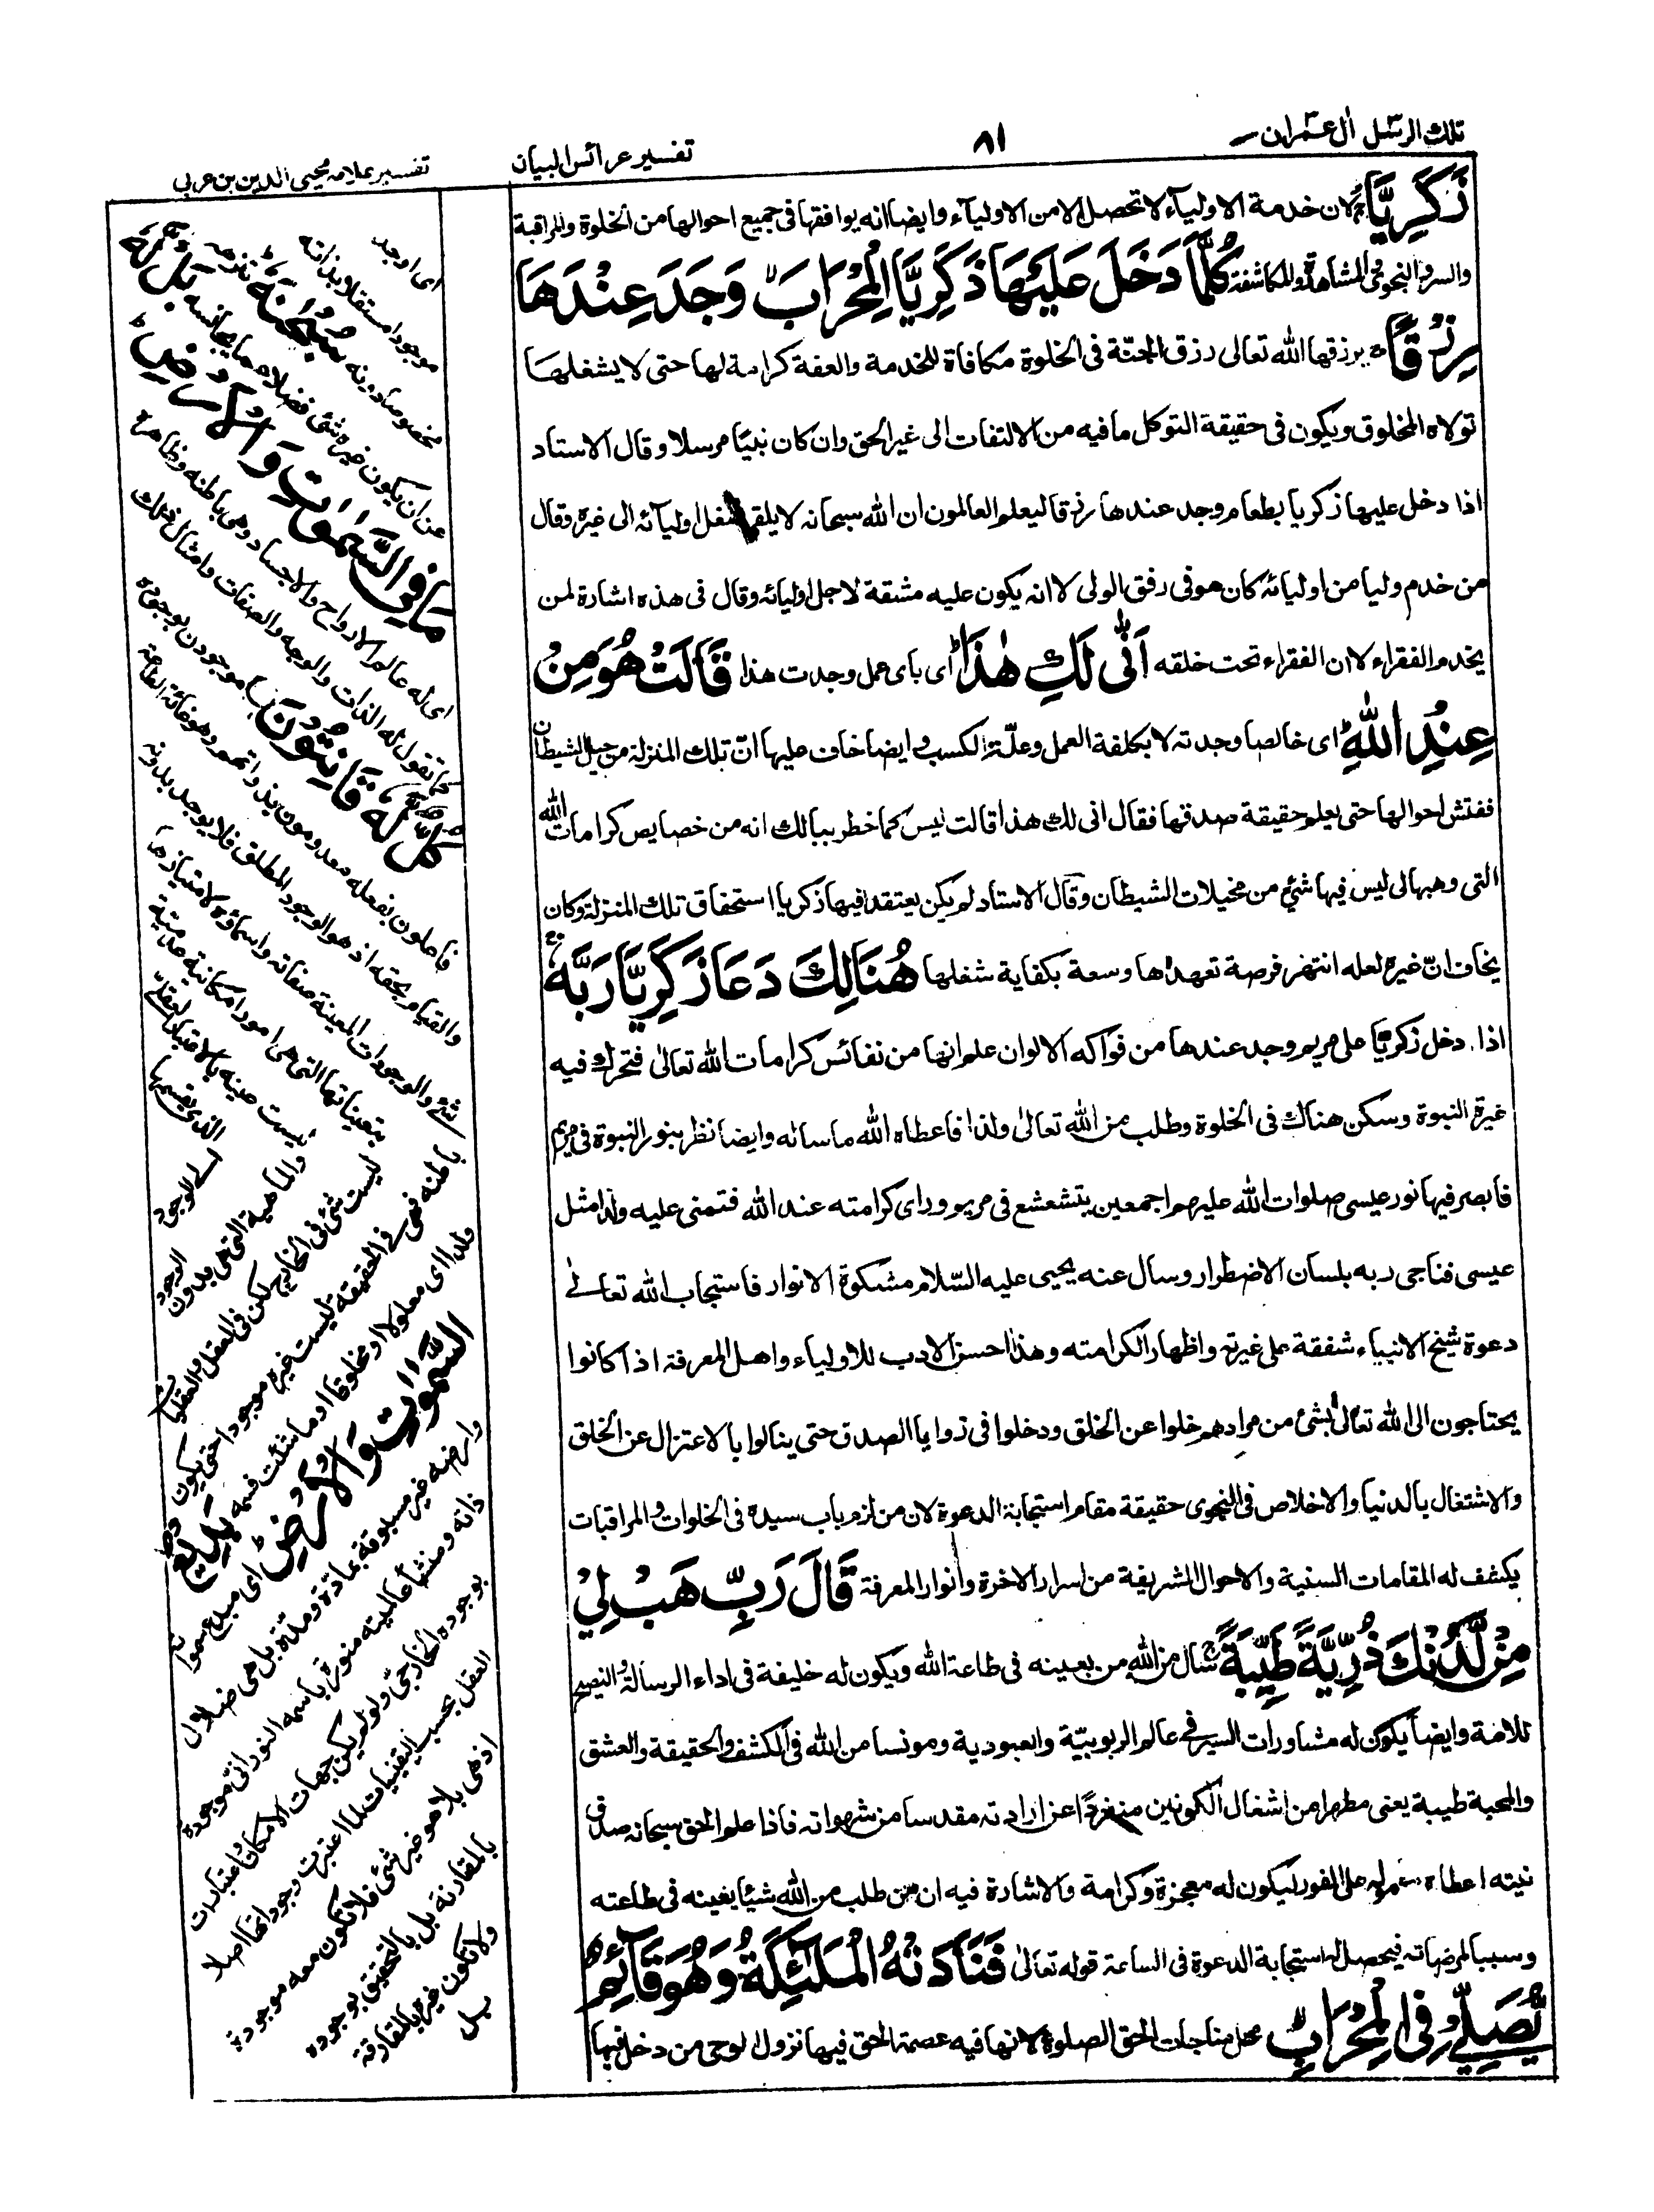 تلك الرسل ال عمران
٨١
تفسير عرائس البيان
تفسير علامه محيى الدين بن عربى
زَكَرِيَّا لان خدمة الاولياء لا تحصل الا من الاولياء وايضا انه يوافقها فى جميع احوالها من الخلوة والمراقبة
والسر والنجوى والمشاهدة والمكاشفة كُلَّمَا دَخَلَ عَلَيْهَا زَكَرِيَّا الْمِحْرَابَ وَجَدَ عِنْدَهَا
رِزْقًا يرزقها الله تعالى رزق الجنّة فى الخلوة مكافاة للخدمة والعفة كرامة لها حتى لا يشغلها
تولاه المخلوق ويكون فى حقيقة التوكل ما فيه من الالتفات الى غير الحق وان كان نبيًا مرسلا وقال الاستاد
اذا دخل عليها زكريا بطعام وجد عندها رزقا ليعلم العالمون ان الله سبحانه لا يلقى شغل اوليائه الى غيره وقال
من خدم وليا من اوليائه كان هو فى رفق الولى لا انه يكون عليه مشقة لاجل اوليائه وقال فى هذه اشارة لمن
يخدم الفقراء لا ان الفقراء تحت خلقه اَنّٰى لَكِ هٰذَا اى باى عمل وجدت هذا قَالَتْ هُوَ مِنْ
عِنْدِ اللّٰهِ اى خالصا وجدته لا بكلفة العمل وعلّة الكسب وايضا خاف عليها انّ تلك المنزلة من حيل الشيطان
ففتش احوالها حتى يعلم حقيقة صدقها فقال انى لك هذا قالت ليس كما خطر ببالك انه من خصايص كرامات الله
التى وهبها لى ليس فيها شئ من مخيلات الشيطان وقال الاستاد لم يكن يعتقد فيها زكريا استحقاق تلك المنزلة وكان
يخاف انّ غيره لعله انتهز فرصة تعهدها وسعة بكفاية شغلها هُنَالِكَ دَعَا زَكَرِيَّا رَبَّهٗ
اذا دخل زكريا على مريم وجد عندها من فواكه الالوان علم انها من نفائس كرامات الله تعالىٰ فتحرك فيه
غيرة النبوة وسكن هناك فى الخلوة وطلب من الله تعالىٰ ولدا فاعطاه الله ما ساله وايضا نظر بنور النبوة فى مريم
فابصر فيها نور عيسى صلوات الله عليهم اجمعين يتشعشع فى مريم وراى كرامته عند الله فتمنى عليه ولدا مثل
عيسى فناجى ربه بلسان الاضطرار وسال عنه يحيى عليه السّلام مشكوة الانوار فاستجاب الله تعالے
دعوة شيخ الانبياء شفقة على غيرته واظهارا لكرامته وهذا احسن الادب للاولياء واهل المعرفة اذا كانوا
يحتاجون الى الله تعالىٰ بشئ من مرادهم خلوا عن الخلق ودخلوا فى زوايا الصدق حتى ينالوا بالاعتزال عن الخلق
والاشتغال بالدنيا والاخلاص فى النجوى حقيقة مقام استجابة الدعوة لان من لزم باب سيده فى الخلوات والمراقبات
يكشف له المقامات السنية والاحوال الشريفة من اسرار الاخرة وانوار المعرفة قَالَ رَبِّ هَبْ لِيْ
مِنْ لَّدُنْكَ ذُرِّيَّةً طَيِّبَةً سال من الله من يعينه فى طاعة الله ويكون له خليفة فى اداء الرسالة والنصيح
للامة وايضا يكون له مشاورات السير فى عالم الربوبيّة والعبودية ومونسا من الله فى الكشف والحقيقة والعشق
والمحبة طيبة يعنى مطهرا من اشغال الكونين منفردا عن ارادته مقدسا من شهواته فاذا علم الحق سبحانه صدق
نيته اعطاه على الفور ليكون له معجزة وكرامة والاشارة فيه ان من طلب من الله شيئا يعينه فى طاعته
وسببا لمرضاته فيحصل له استجابة الدعوة فى الساعة قوله تعالىٰ فَنَادَتْهُ الْمَلٰٓئِكَةُ وَهُوَ قَآئِمٌ
يُّصَلِّيْ فِى الْمِحْرَابِ محل مناجات الحق الصلوة لانها فيه عصمة الحق فيها نزول الوحى من دخل فيها
اى اوجد
موجودا مستقلا بذاته
مخصوصا دونه سُبْحٰنَهٗ تنزهه
عن ان يكون غيره شئ فضلا عما يجانسه بَلْ لَّهٗ
مَا فِى السَّمٰوٰتِ وَالْاَرْضِ
اى له عالم الارواح والاجساد وهى باطنه وظاهره
كما تقول له الذات والوجه والصفات وامثال ذلك
كُلٌّ لَّهٗ قَانِتُوْنَ موجودون بوجوده
فاعلون بفعله معدومون بذواتهم وهو غاية الطاعة
والقيام بحقه اذ هو الوجود المطلق فلا يوجد بدونه
شئ والوجودات المعينة صفاته واسماؤه لامتيازها
بتعيناتها التى هى امور امكانية عدمية
ليست عينه بالاعتبار العقلى
الذى يقسمها
الى الوجود
والماهية التى هى بدون الوجود
ليست شئ فى الخارج لكن فى العقل والعقليات
باطنه فهى فى الحقيقة ليست غيره موجودا حتى يكون
ولدا اى معلولا او مخلوقا او ما شئت فسمه بَدِيْعُ
السَّمٰوٰتِ وَالْاَرْضِ اى مبدع سمواته
وارضه غير مسبوقة بمادّة ومدّة بل هى ضلال
ذاته ومنشأ عالميته منورة باسمه النور انى موجودة
بوجوده الخارجى ولو لم يكن جهات الامكان واعتبارات
العقل بحسب اليقينيات لما اعتبرت وجوداتها اصلا
اذ هى بلا هو غير شئ فلا تكون معه موجودة
بالمقارنة بل بالتحقيق بوجوده
ولا تكون غيره بالمقارقة
بل